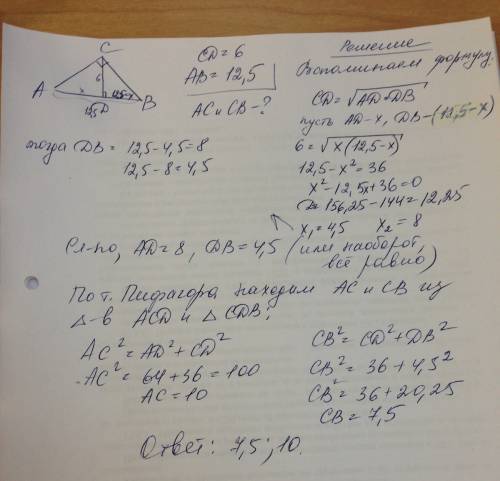 C
A
x
6
12,5-x
12,5
D
B
CD = 6
AB = 12,5
AC и CB - ?
Решение
Вспоминаем формулу:
CD = √AD·DB
пусть AD - x, DB - (12,5 - x)
6 = √x(12,5 - x)
12,5 - x² = 36
x² - 12,5x + 36 = 0
D = 156,25 - 144 = 12,25
x₁ = 4,5 x₂ = 8
тогда DB = 12,5 - 4,5 = 8
12,5 - 8 = 4,5
Сл-но, AD = 8, DB = 4,5 (или наоборот,
всё равно)
По т. Пифагора находим AC и CB из
△-в ACD и △ CDB:
AC² = AD² + CD²
AC² = 64 + 36 = 100
AC = 10
CB² = CD² + DB²
CB² = 36 + 4,5²
CB² = 36 + 20,25
CB = 7,5
Ответ: 7,5; 10.